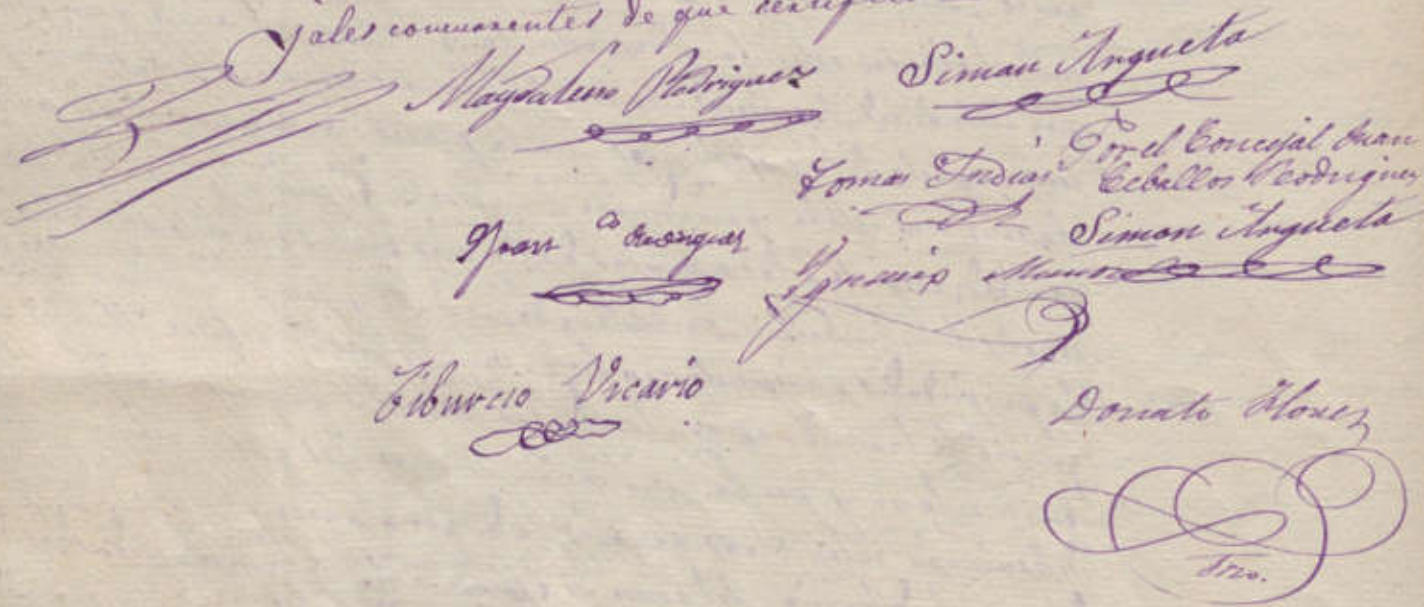 jales concurrentes de que certifico
Magdaleno Rodriguez
Simon Argueta
Tomas Indias
Por el Concejal Juan
Ceballos Rodriguez
Simon Argueta
Juan Co Rodriguez
Ygnacio Munoz
Tiburcio Vicario
Donato Florez
Srio.